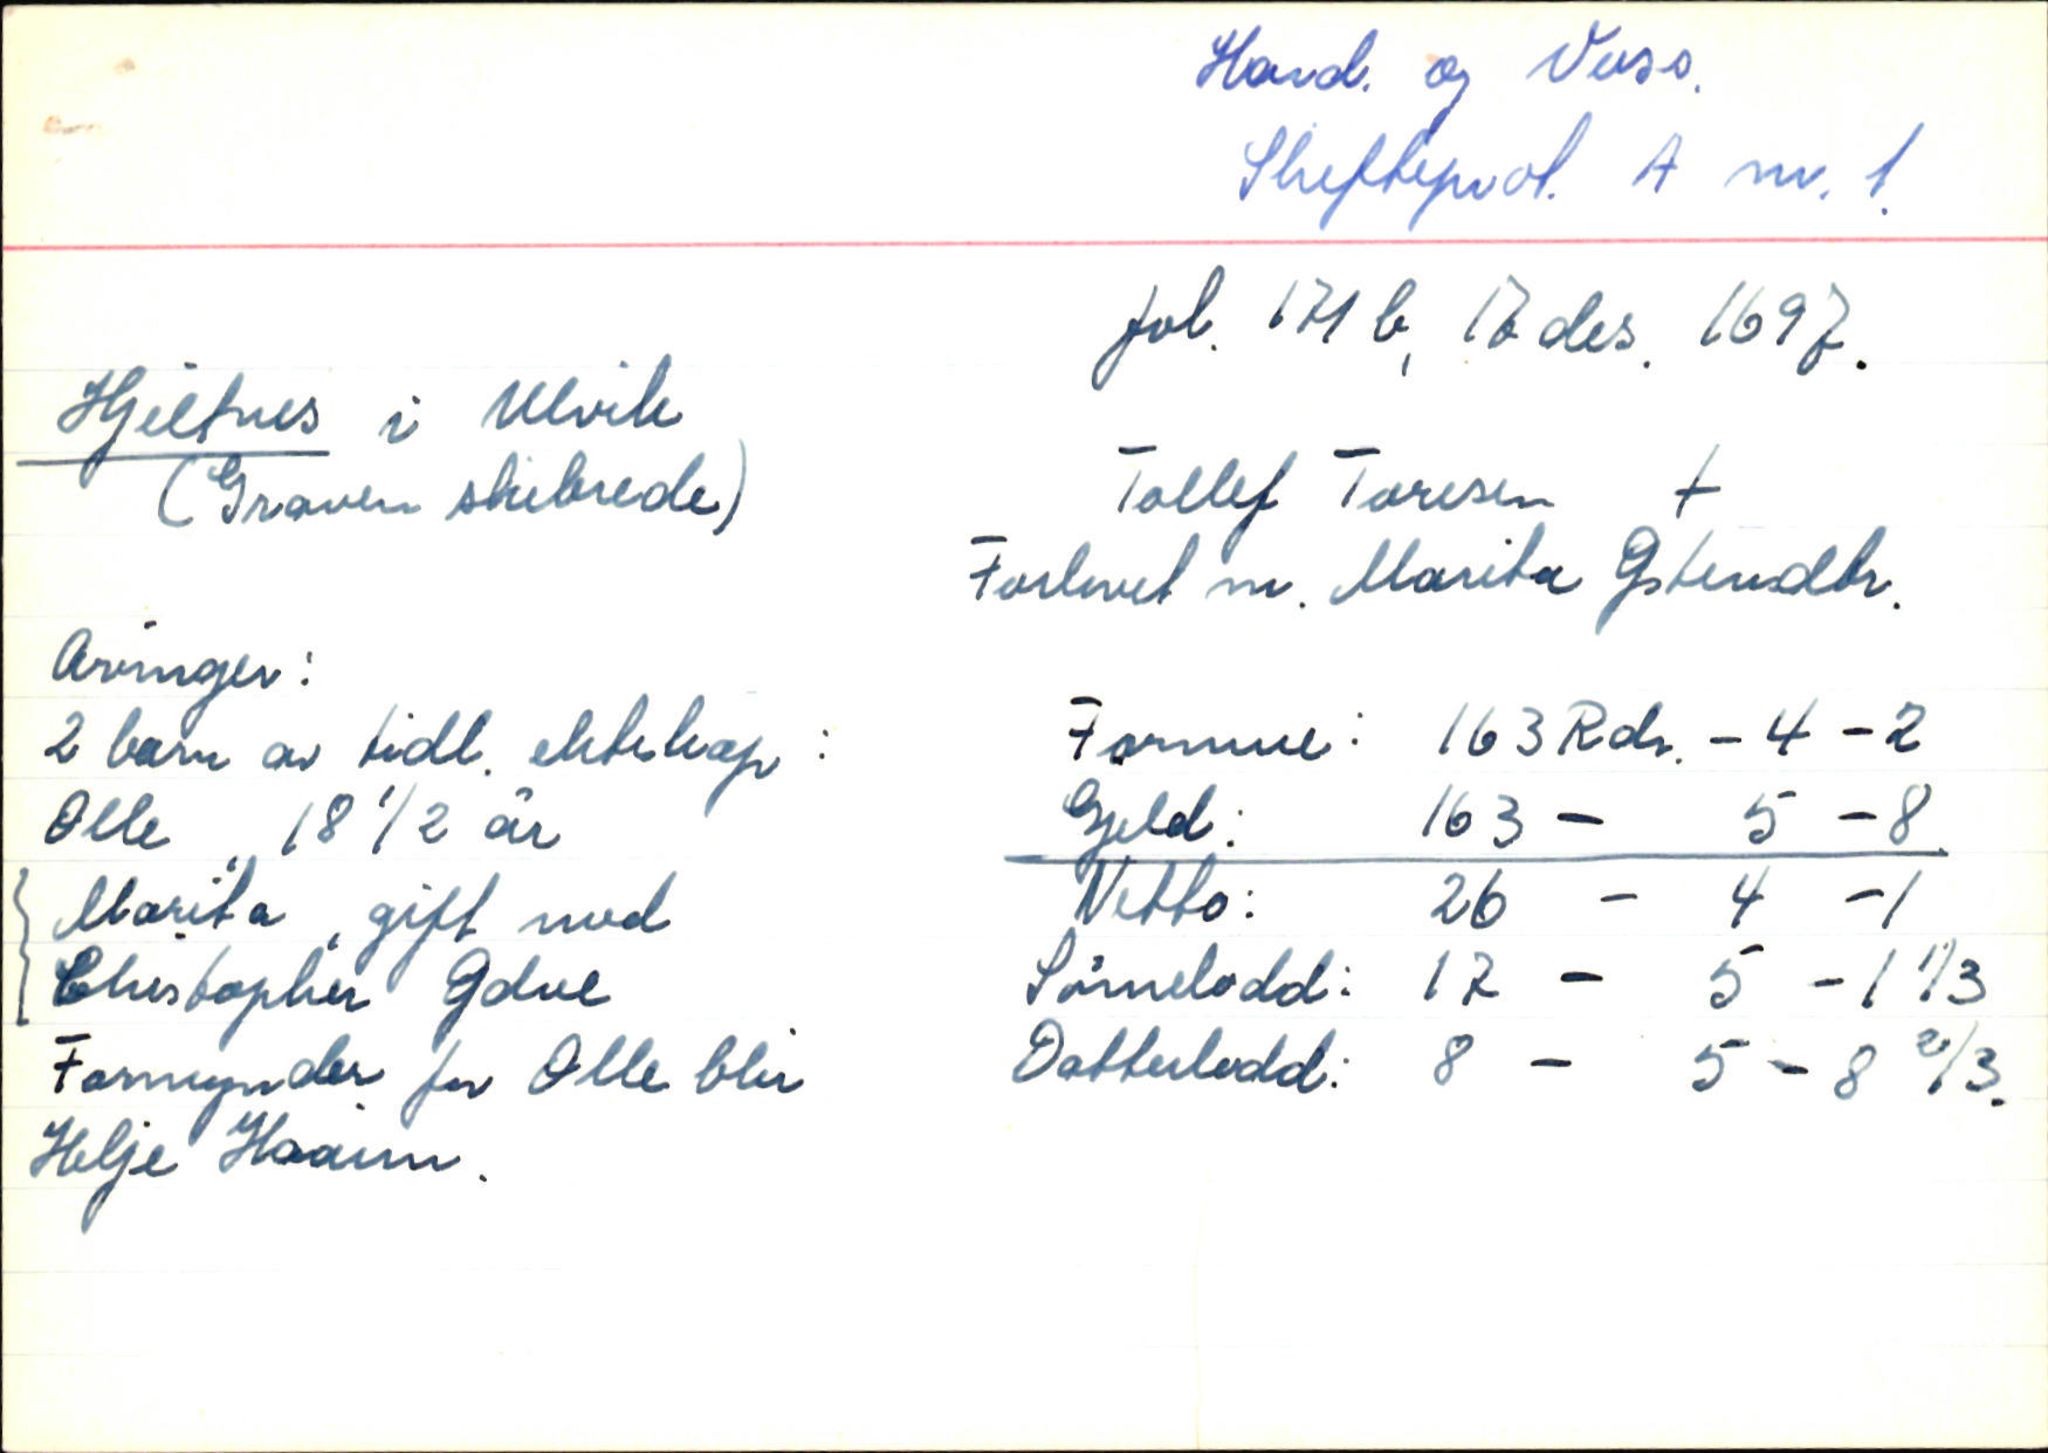 Hard. og Voss.
Skifteprot. A nr. 1.
fol. 171 b, 17 des. 1697.
Hjeltnes i Ulvik
(Graven skibrede)
Tollef Toresen +
Forlovet m. Marita Gstensdtr.
Arvinger:
2 barn av tidl. ekteskap:
Olle, 18 1/2 år
Marita, gift med
Christopher Gdve
Formynder for Olle blir
Helje Haaim.
Formue: 163 Rdr. - 4 - 2
Gjeld: 163 - 5 - 8
Netto: 26 - 4 - 1
Sönnelodd: 17 - 5 - 1 1/3
Datterlodd: 8 - 5 - 8 2/3.